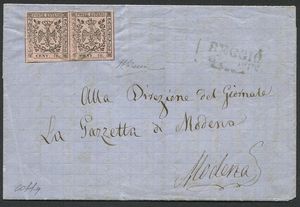 CENT. 10. CENT. 10.
REGGIO
Alla Direzione del Giornale
La Gazzetta di Modena
Modena